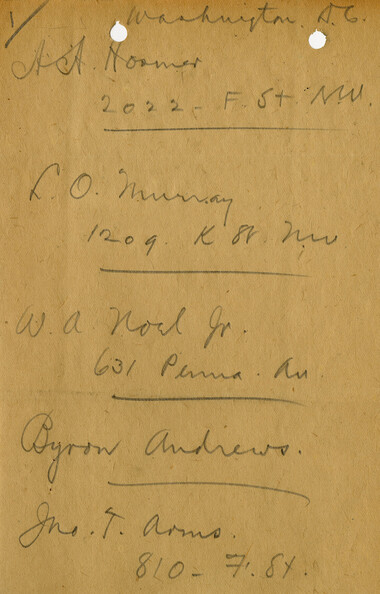 1/
Washington. D.C.
A. A. Hosmer
2022 - F. St N.W.
L. O. Murray
1209. K St. NW
W. A Noel Jr.
631 Penna. Av
Byron Andrews.
Jno. T. Arms.
810 - F. St.